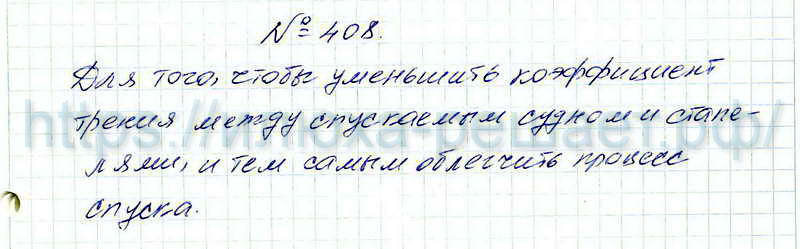 № 408.
Для того, чтобы уменьшить коэффициент
трения между спускаемым судном и стапе-
лями, и тем самым облегчить процесс
спуска.